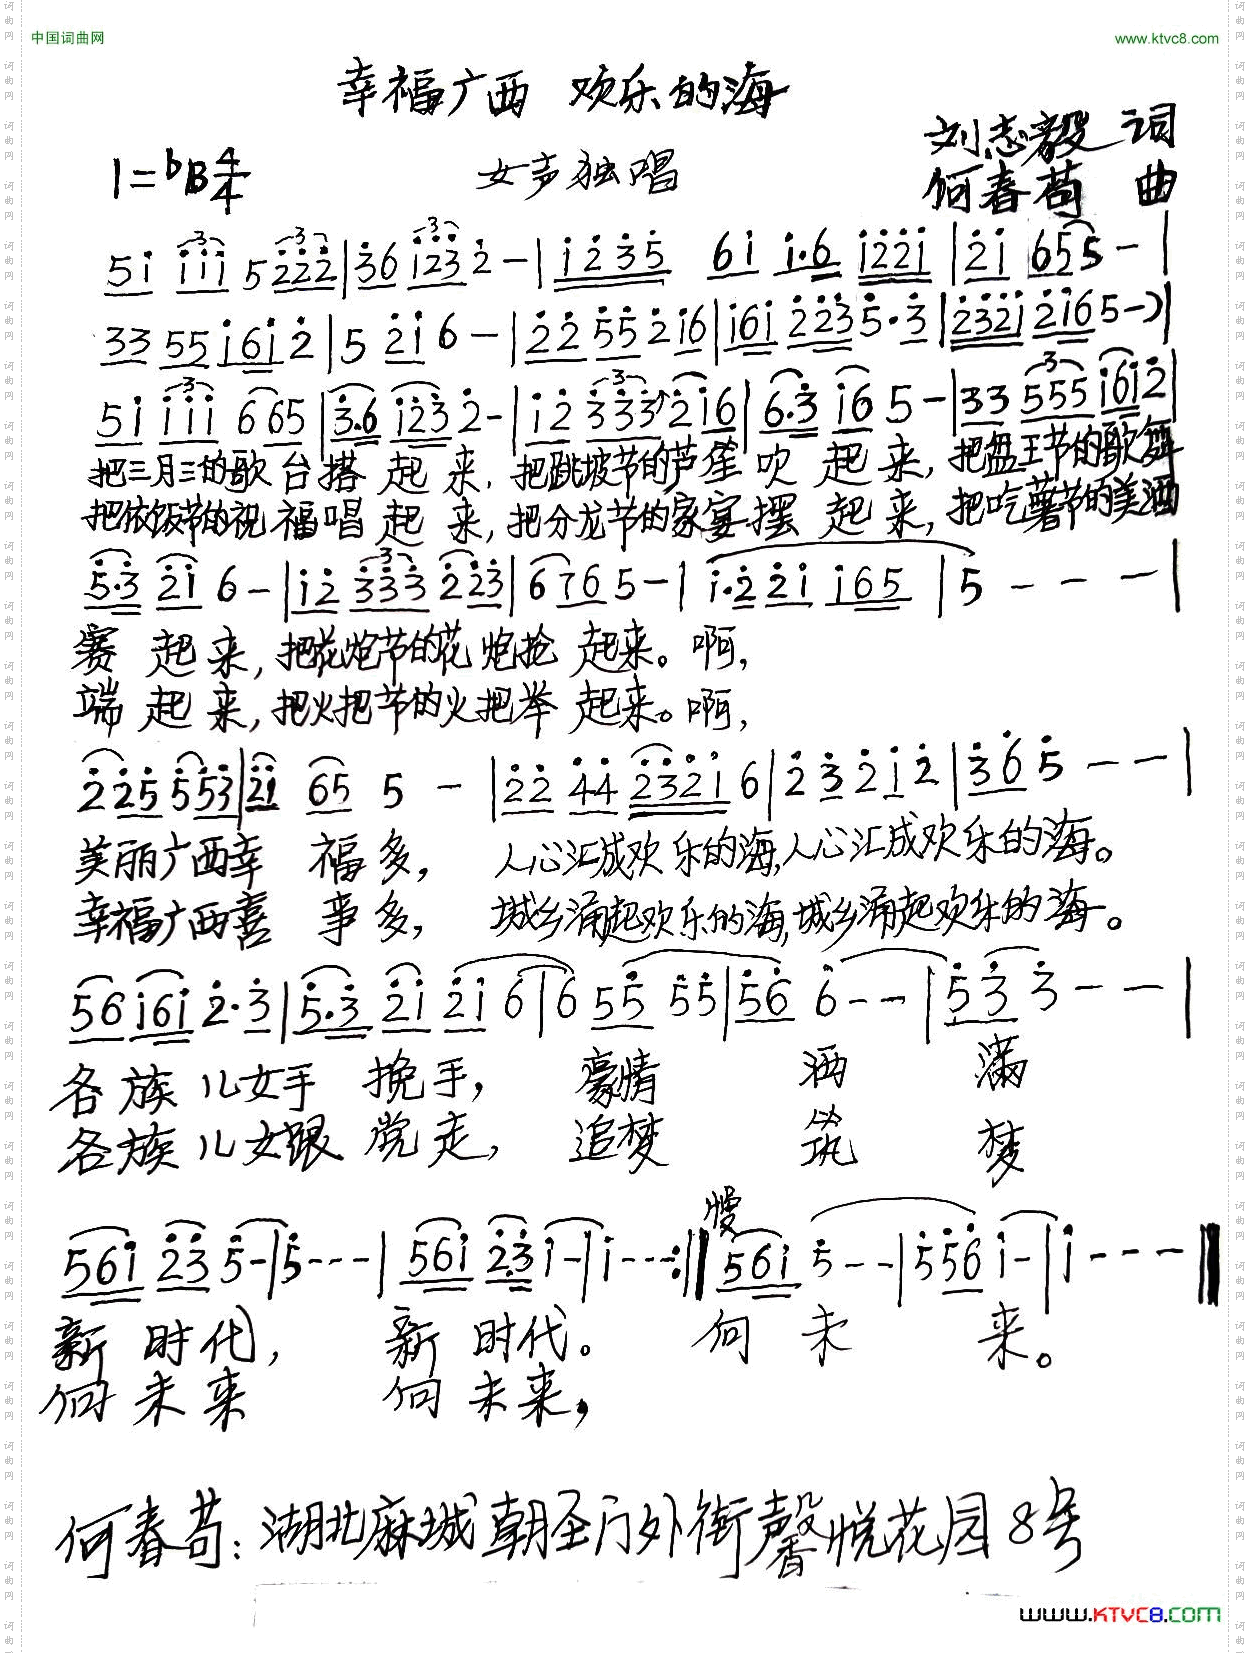 中国词曲网
www.ktvc8.com
幸福广西 欢乐的海
刘志毅 词
1=♭B 4/4
女声独唱
何春苟 曲
5i iii 5222|36 123 2-|i235 6i i·6 i22i|2i 655-|
33 55 i6i 2|5 2i 6-|22 55 2i6|i6i 223 5·3|232i 2i65-)|
5i iii 665|3·6 i23 2-|i2 333 2i6|6·3 i6 5-|33 555 i6i2|
把三月三的歌台搭起来,把跳坡节的芦笙吹起来,把盘王节的歌舞
把侬饭节的祝福唱起来,把分龙节的家宴摆起来,把吃薯节的美酒
5·3 2i 6-|i2 333 223|676 5-|i·2 2i i65|5---|
赛起来,把花炮节的花炮抢起来。啊,
端起来,把火把节的火把举起来。啊,
225 553|2i 65 5-|22 44 232i 6|232i2|365--|
美丽广西幸福多,人心汇成欢乐的海,人心汇成欢乐的海。
幸福广西喜事多,城乡涌起欢乐的海,城乡涌起欢乐的海。
56 i6i 2·3|5·3 2i 2i 6|6 55 55|56 6--|53 3--|
各族儿女手挽手,豪情洒满
各族儿女跟党走,追梦筑梦
慢
56i 23 5-|5---|56i 23 i-|i---:‖56i 5--|556 i-|i---‖
新时代,新时代。向未来。
向未来 向未来,
何春苟:湖北麻城朝圣门外街馨悦花园8号
www.KTVC8.com